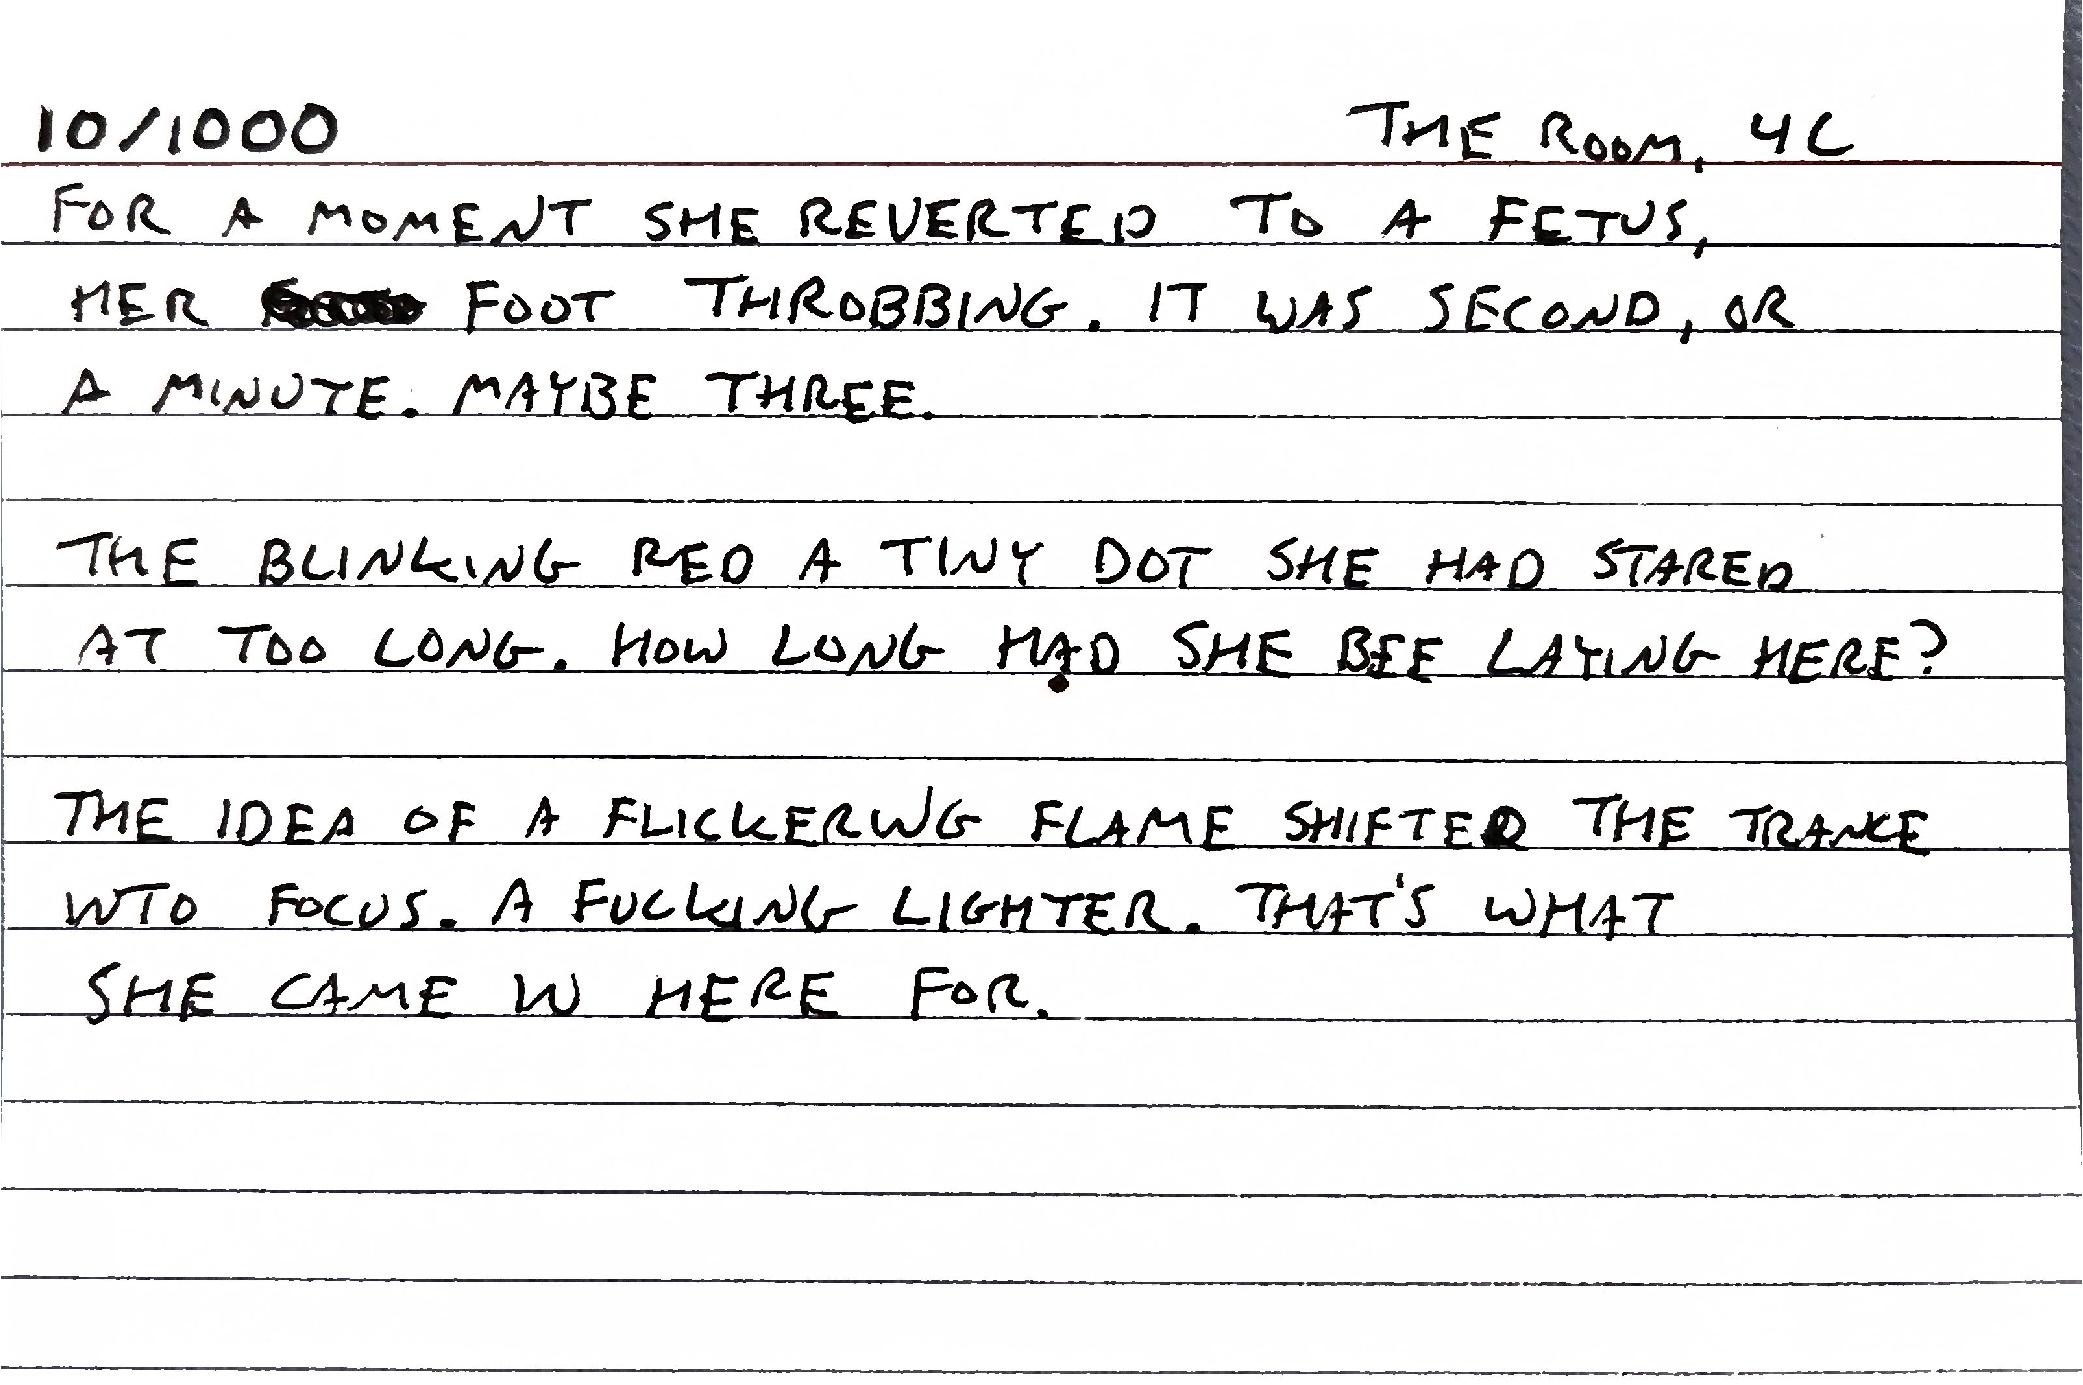 10/1000 THE ROOM, 4C
FOR A MOMENT SHE REVERTED TO A FETUS,
HER FOOT THROBBING. IT WAS SECOND, OR
A MINUTE. MAYBE THREE.
THE BLINKING RED A TINY DOT SHE HAD STARED
AT TOO LONG. HOW LONG HAD SHE BEE LAYING HERE?
THE IDEA OF A FLICKERING FLAME SHIFTED THE TRANCE
INTO FOCUS. A FUCKING LIGHTER. THAT'S WHAT
SHE CAME IN HERE FOR.